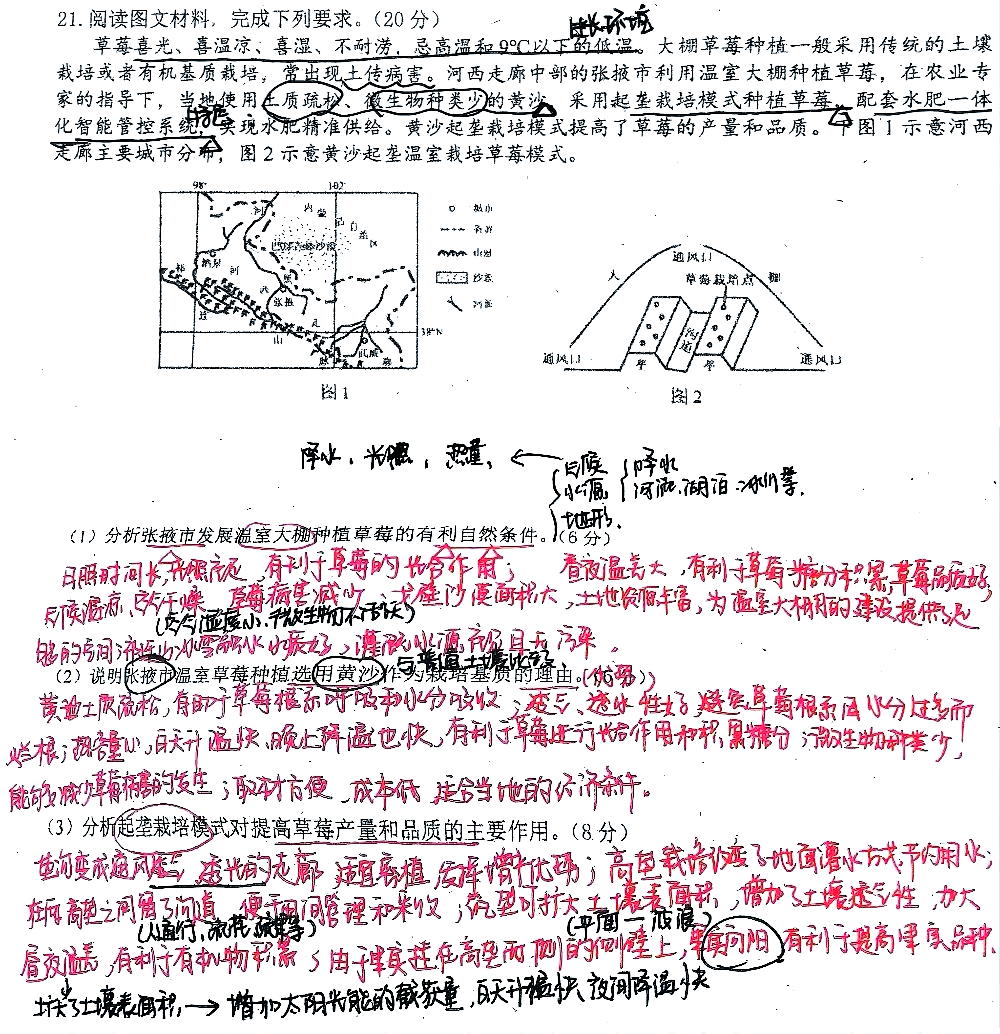 21.阅读图文材料，完成下列要求。（20分）
生长环境
草莓喜光、喜温凉、喜湿、不耐涝，忌高温和9℃以下的低温。大棚草莓种植一般采用传统的土壤
栽培或者有机基质栽培，常出现土传病害。河西走廊中部的张掖市利用温室大棚种植草莓，在农业专
家的指导下，当地使用土质疏松、微生物种类少的黄沙，采用起垄栽培模式种植草莓，配套水肥一体
化智能管控系统，实现水肥精准供给。黄沙起垄栽培模式提高了草莓的产量和品质。下图1示意河西
走廊主要城市分布，图2示意黄沙起垄温室栽培草莓模式。
98° 102°
内蒙古自治区
巴丹吉林沙漠
酒泉
张掖
武威
祁连山脉
河西走廊
38°N
城市
山脉
沙漠
河流
图1
通风口
大棚
草莓栽培点
沟道
垄 垄
通风口 通风口
图2
降水、光照、热量、
气候
水源
地形.
降水
河流、湖泊、冰川等.
（1）分析张掖市发展温室大棚种植草莓的有利自然条件。（6分）
日照时间长,光照充足,有利于草莓的光合作用；昼夜温差大,有利于草莓糖分积累,草莓品质好;
气候温凉,空气干燥,草莓病害减少；戈壁沙漠面积大,土地资源丰富,为温室大棚的建设提供足
(空气湿度小、微生物不活跃)
够的空间;祁连山冰雪融水水质好,灌溉水源充足且无污染。
与普通土壤比较、
（2）说明张掖市温室草莓种植选用黄沙作为栽培基质的理由。（6分）
(优势)
黄沙土质疏松,有助于草莓根系呼吸和水分吸收；透气、透水性好,避免草莓根系因水分过多而
烂根；热容量小,白天升温快,晚上降温也快,有利于草莓进行光合作用和积累糖分；微生物种类少,
能够减少草莓病害的发生；取材方便,成本低,适合当地的经济条件。
（3）分析起垄栽培模式对提高草莓产量和品质的主要作用。（8分）
垄沟变成通风透气、透光的走廊,适宜密植,发挥增产优势；高垄栽培改变了地面灌水方式,节约用水；
在两高垄之间留了沟道,便于田间管理和采收；起垄可扩大土壤表面积,增加了土壤透气性,加大
(人通行,浇花,施肥等)
(平面一波浪)
昼夜温差,有利于有机物积累；由于果实挂在高垄两侧的侧壁上,果实向阳,有利于提高果实品种.
扩大了土壤表面积→增加太阳光能的截获量,白天升温快、夜间降温快